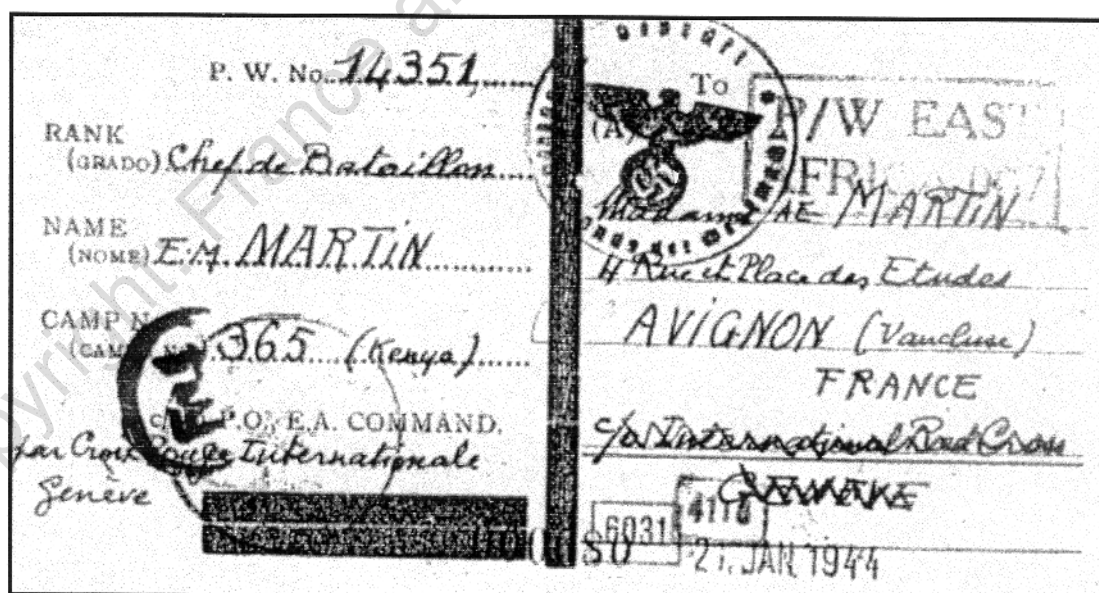 P. W. No. 14351
RANK
(GRADO) Chef de Bataillon
NAME
(NOME) E.M. MARTIN
CAMP
365 (Kenya)
P.O., E.A. COMMAND.
par Croix Rouge Internationale
Genève
To
(A)
P/W EAST
Madame MARTIN
4 Rue et Place des Etudes
AVIGNON (Vaucluse)
FRANCE
c/o International Red Cross
6031
4110
21 JAN 1944